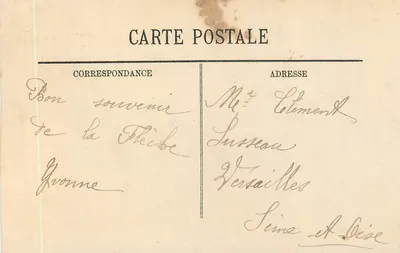 CARTE POSTALE
CORRESPONDANCE
Bon souvenir
de la Flèche
Yvonne
ADRESSE
Mr Clément
Lusseau
Versailles
Seine et Oise